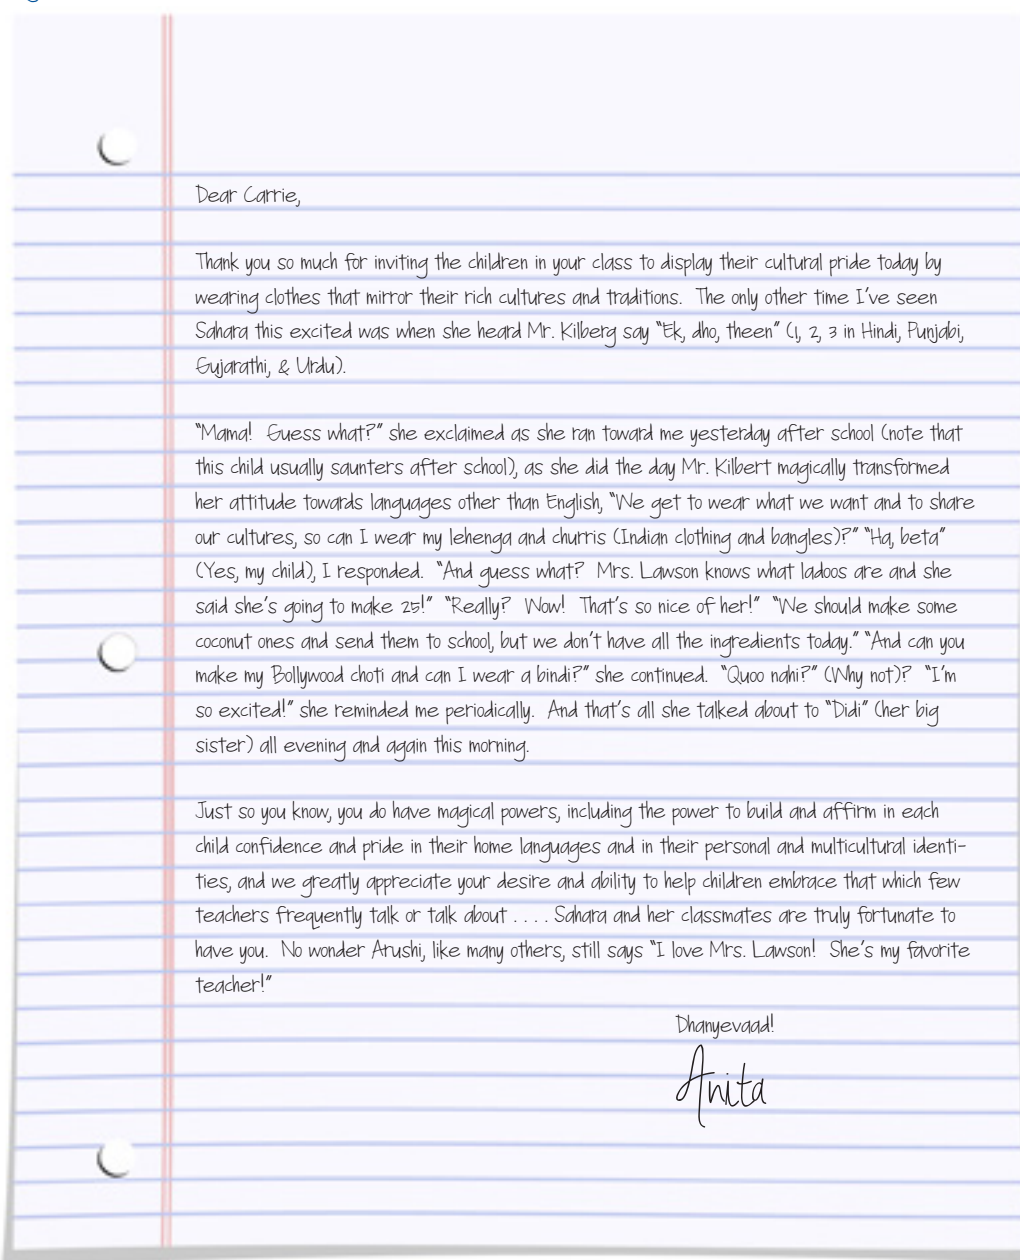 Dear Carrie,
Thank you so much for inviting the children in your class to display their cultural pride today by
wearing clothes that mirror their rich cultures and traditions.  The only other time I've seen
Sahara this excited was when she heard Mr. Kilberg say “Ek, dho, theen” (1, 2, 3 in Hindi, Punjabi,
Gujarathi, & Urdu).
“Mama!  Guess what?” she exclaimed as she ran toward me yesterday after school (note that
this child usually saunters after school), as she did the day Mr. Kilbert magically transformed
her attitude towards languages other than English, “We get to wear what we want and to share
our cultures, so can I wear my lehenga and churris (Indian clothing and bangles)?” “Ha, beta”
(Yes, my child), I responded.  “And guess what?  Mrs. Lawson knows what ladoos are and she
said she's going to make 25!”  “Really?  Wow!  That's so nice of her!”  “We should make some
coconut ones and send them to school, but we don't have all the ingredients today.” “And can you
make my Bollywood choti and can I wear a bindi?” she continued.  “Quoo nahi?” (Why not)?  “I'm
so excited!” she reminded me periodically.  And that's all she talked about to “Didi” (her big
sister) all evening and again this morning.
Just so you know, you do have magical powers, including the power to build and affirm in each
child confidence and pride in their home languages and in their personal and multicultural identi-
ties, and we greatly appreciate your desire and ability to help children embrace that which few
teachers frequently talk or talk about . . . . Sahara and her classmates are truly fortunate to
have you.  No wonder Arushi, like many others, still says “I love Mrs. Lawson!  She's my favorite
teacher!”
Dhanyevaad!
Anita